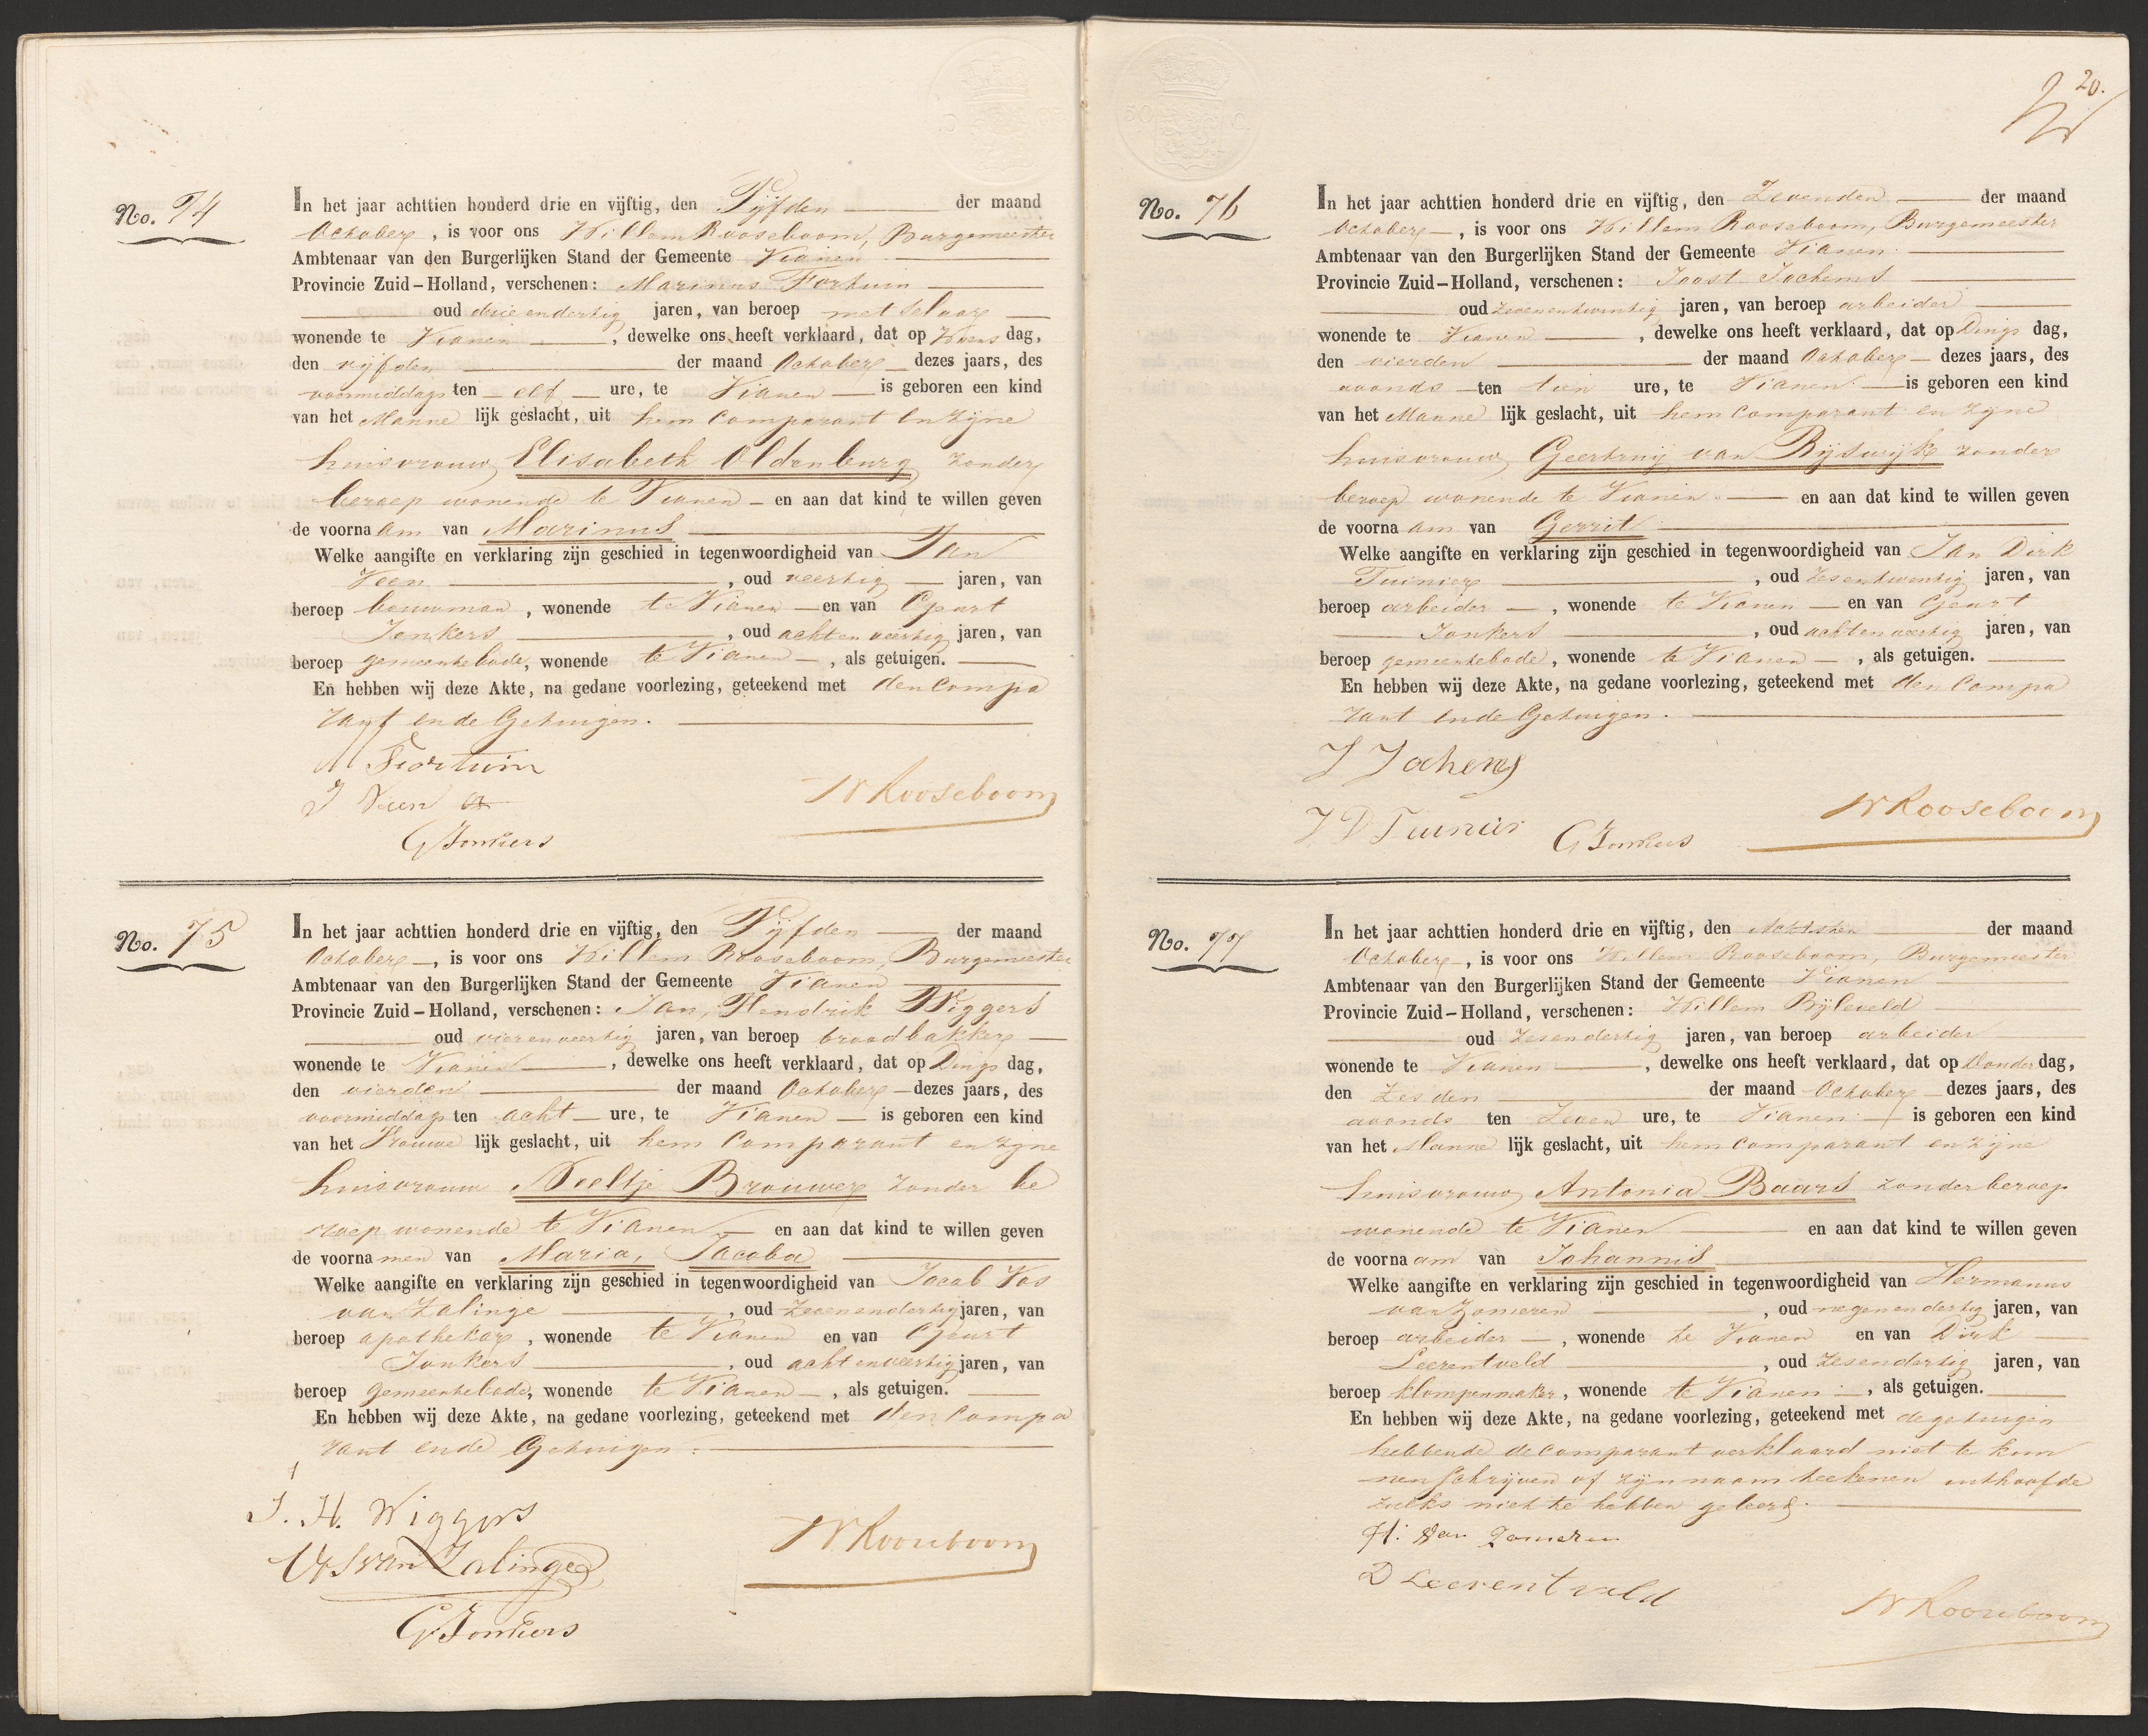 No. 74
In het jaar achttien honderd drie en vijftig, den Vijfden der maand
October, is voor ons Willem Rooseboom, Burgemeester
Ambtenaar van den Burgerlijken Stand der Gemeente Vianen
Provincie Zuid-Holland, verschenen: Marinus Fortuin
oud drie en dertig jaren, van beroep metselaar
wonende te Vianen, dewelke ons heeft verklaard, dat op Woens dag,
den vijfden der maand October dezes jaars, des
voormiddags ten elf ure, te Vianen is geboren een kind
van het Manne lijk geslacht, uit hem Comparant en zijne
huisvrouw Elisabeth Oldenburg zonder
beroep wonende te Vianen en aan dat kind te willen geven
de voorna am van Marinus
Welke aangifte en verklaring zijn geschied in tegenwoordigheid van Jan
Veen, oud veertig jaren, van
beroep bouwman, wonende te Vianen en van Geurt
Jonkers, oud achtenveertig jaren, van
beroep gemeentebode, wonende te Vianen, als getuigen.
En hebben wij deze Akte, na gedane voorlezing, geteekend met den Compa
rant en de Getuigen.
M Fortuin
J Veen
W Rooseboom
G Jonkers
No. 75
In het jaar achttien honderd drie en vijftig, den Vijfden der maand
October, is voor ons Willem Rooseboom, Burgemeester
Ambtenaar van den Burgerlijken Stand der Gemeente Vianen
Provincie Zuid-Holland, verschenen: Jan, Hendrik Wiggers
oud vierenveertig jaren, van beroep broodbakker
wonende te Vianen, dewelke ons heeft verklaard, dat op Dings dag,
den vierden der maand October dezes jaars, des
voormiddags ten acht ure, te Vianen is geboren een kind
van het Vrouwe lijk geslacht, uit hem Comparant en zyne
huisvrouw Neeltje Brouwer zonder be
roep wonende te Vianen en aan dat kind te willen geven
de voorna men van Maria, Jacoba
Welke aangifte en verklaring zijn geschied in tegenwoordigheid van Jacob Vos
van Zalinge, oud zevenendertig jaren, van
beroep apothekar, wonende te Vianen en van Geurt
Jonkers, oud achtenveertig jaren, van
beroep gemeentebode, wonende te Vianen, als getuigen.
En hebben wij deze Akte, na gedane voorlezing, geteekend met den Compa
rant en de Getuigen.
J. H. Wiggers
W Rooseboom
van Zalinge
G Jonkers
20.
No. 76
In het jaar achttien honderd drie en vijftig, den Zevenden der maand
October, is voor ons Willem Rooseboom, Burgemeester
Ambtenaar van den Burgerlijken Stand der Gemeente Vianen
Provincie Zuid-Holland, verschenen: Joost Jochems
oud zevenentwintig jaren, van beroep arbeider
wonende te Vianen, dewelke ons heeft verklaard, dat op Dings dag,
den vierden der maand October dezes jaars, des
avonds ten tien ure, te Vianen is geboren een kind
van het Manne lijk geslacht, uit hem Comparant en zyne
huisvrouw Geertruij van Rijswijk zonder
beroep wonende te Vianen en aan dat kind te willen geven
de voorna am van Gerrit
Welke aangifte en verklaring zijn geschied in tegenwoordigheid van Jan Dirk
Tuinier, oud zesentwintig jaren, van
beroep arbeider, wonende te Vianen en van Geurt
Jonkers, oud achtenveertig jaren, van
beroep gemeentebode, wonende te Vianen, als getuigen.
En hebben wij deze Akte, na gedane voorlezing, geteekend met den Compa
rant en de Getuigen.
J Jochems
W Rooseboom
J D Tuinier G Jonkers
No. 77
In het jaar achttien honderd drie en vijftig, den Achtsten der maand
October, is voor ons Willem Rooseboom, Burgemeester
Ambtenaar van den Burgerlijken Stand der Gemeente Vianen
Provincie Zuid-Holland, verschenen: Willem Bijleveld
oud zesendertig jaren, van beroep arbeider
wonende te Vianen, dewelke ons heeft verklaard, dat op Donder dag,
den zesden der maand October dezes jaars, des
avonds ten zeven ure, te Vianen is geboren een kind
van het Manne lijk geslacht, uit hem comparant en zijne
huisvrouw Antonia Baars zonder beroep
wonende te Vianen en aan dat kind te willen geven
de voorna am van Johannis
Welke aangifte en verklaring zijn geschied in tegenwoordigheid van Hermanus
van Zomeren, oud negenendertig jaren, van
beroep arbeider, wonende te Vianen en van Dirk
Leerentveld, oud zesendertig jaren, van
beroep klompenmaker, wonende te Vianen, als getuigen.
En hebben wij deze Akte, na gedane voorlezing, geteekend met de getuigen
hebbende de comparant verklaard niet te kun
nen schrijven of zijn naam teekenen uithoofde
zulks niet te hebben geleerd.
H: van Zomeren
D Leerentveld
W Rooseboom